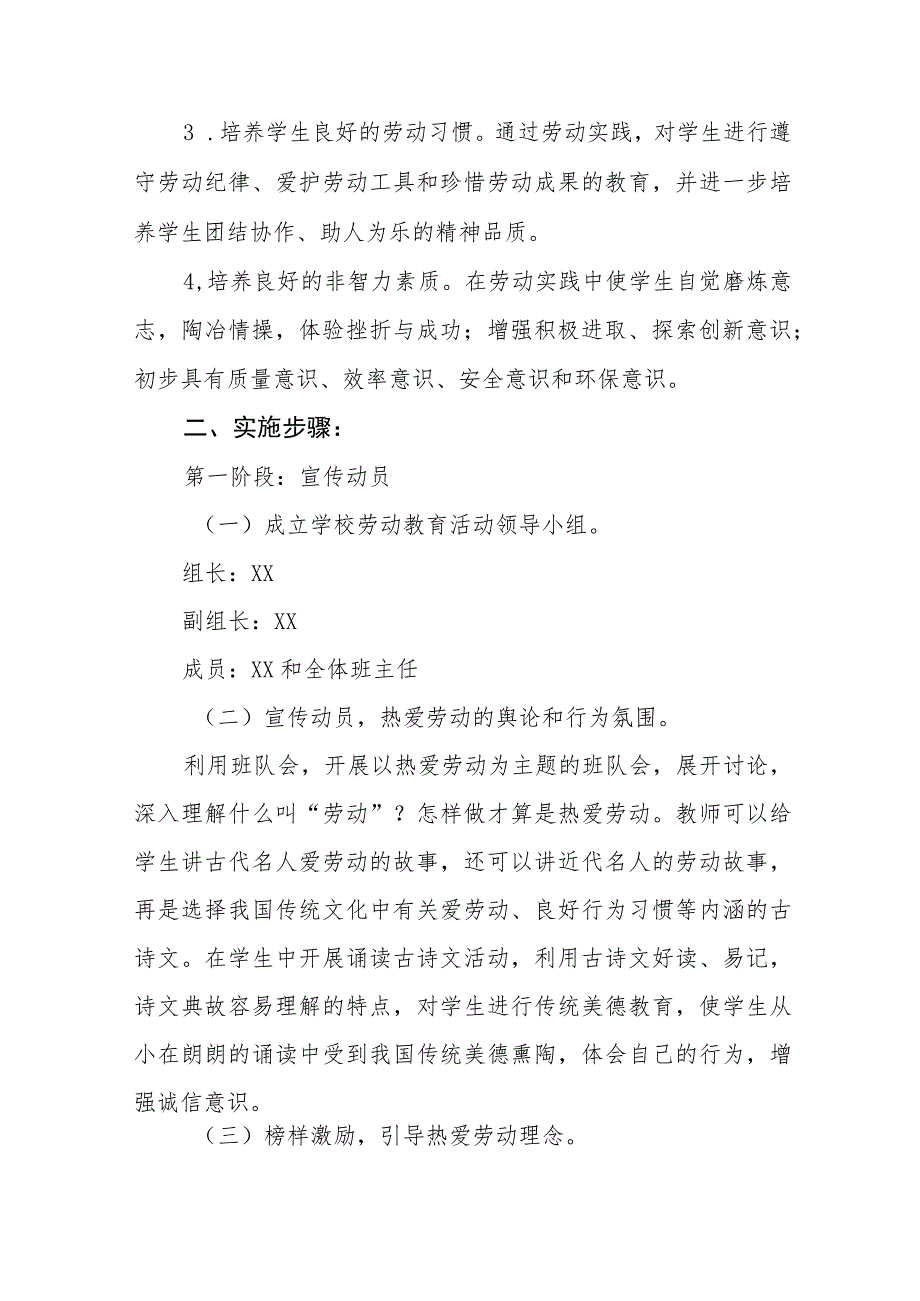 3 .培养学生良好的劳动习惯。通过劳动实践，对学生进行遵
守劳动纪律、爱护劳动工具和珍惜劳动成果的教育，并进一步培
养学生团结协作、助人为乐的精神品质。
4,培养良好的非智力素质。在劳动实践中使学生自觉磨炼意
志，陶冶情操，体验挫折与成功；增强积极进取、探索创新意识；
初步具有质量意识、效率意识、安全意识和环保意识。
二、实施步骤：
第一阶段：宣传动员
（一）成立学校劳动教育活动领导小组。
组长：XX
副组长：XX
成员：XX 和全体班主任
（二）宣传动员，热爱劳动的舆论和行为氛围。
利用班队会，开展以热爱劳动为主题的班队会，展开讨论，
深入理解什么叫“劳动”？怎样做才算是热爱劳动。教师可以给
学生讲古代名人爱劳动的故事，还可以讲近代名人的劳动故事，
再是选择我国传统文化中有关爱劳动、良好行为习惯等内涵的古
诗文。在学生中开展诵读古诗文活动，利用古诗文好读、易记，
诗文典故容易理解的特点，对学生进行传统美德教育，使学生从
小在朗朗的诵读中受到我国传统美德熏陶，体会自己的行为，增
强诚信意识。
（三）榜样激励，引导热爱劳动理念。